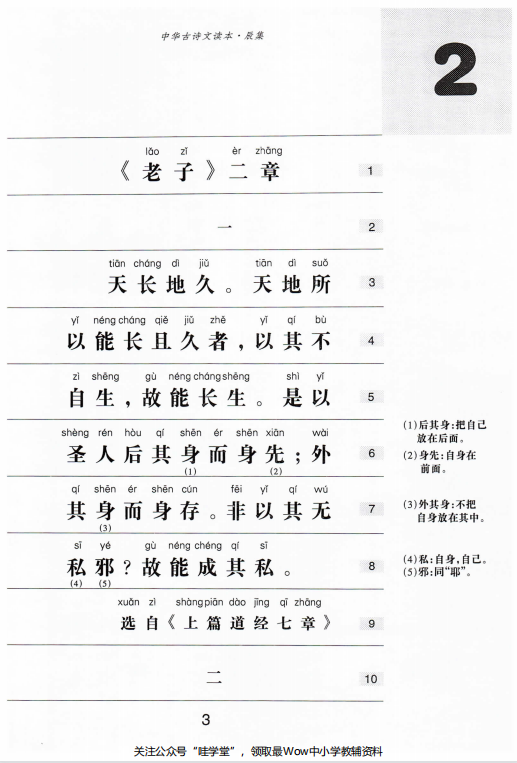 中华古诗文读本·辰集
2
lǎo zǐ èr zhāng
《老子》二章 1
一 2
tiān cháng dì jiǔ tiān dì suǒ
天长地久。天地所 3
yǐ néng cháng qiě jiǔ zhě yǐ qí bù
以能长且久者,以其不 4
zì shēng gù néng cháng shēng shì yǐ
自生,故能长生。是以 5
shèng rén hòu qí shēn ér shēn xiān wài
圣人后其身而身先;外 6
(1) (2)
qí shēn ér shēn cún fēi yǐ qí wú
其身而身存。非以其无 7
(3)
sī yé gù néng chéng qí sī
私邪?故能成其私。 8
(4) (5)
xuǎn zì shàng piān dào jīng qī zhāng
选自《上篇道经七章》 9
二 10
(1)后其身:把自己
放在后面。
(2)身先:自身在
前面。
(3)外其身:不把
自身放在其中。
(4)私:自身,自己。
(5)邪:同“耶”。
3
关注公众号“哇学堂”,领取最Wow中小学教辅资料